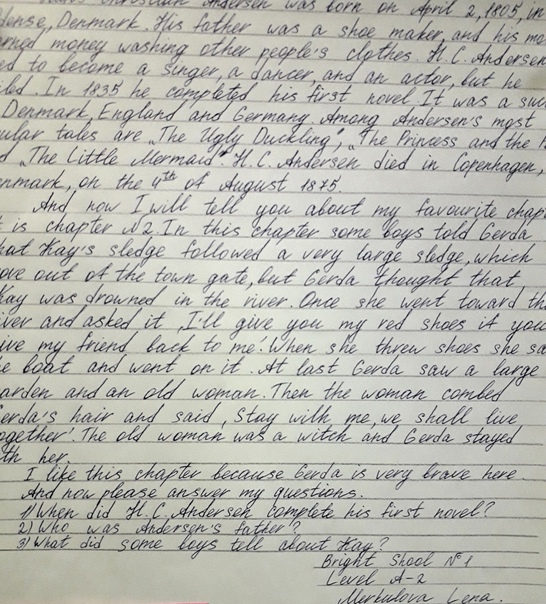 Christian Andersen was born on April 2, 1805, in
dense, Denmark. His father was a shoe maker, and his mo
rned money washing other people's clothes. H.C. Andersen
ed to become a singer, a dancer, and an actor, but he
led. In 1835 he completed his first novel. It was a suc
Denmark, England and Germany. Among Andersen's most
ular tales are „The Ugly Duckling", „The Princess and the
d „The Little Mermaid". H.C. Andersen died in Copenhagen,
nmark, on the 4th of August 1875.
And now I will tell you about my favourite chap
t is chapter №2. In this chapter some boys told Gerda
hat Kay's sledge followed a very large sledge, which
ove out of the town gate, but Gerda thought that
Kay was drowned in the river. Once she went toward th
iver and asked it ,I'll give you my red shoes if you
ive my friend back to me'. When she threw shoes she sa
he boat and went on it. At last Gerda saw a large
arden and an old woman. Then the woman combed
erda's hair and said, ,Stay with me, we shall live
ogether'. The old woman was a witch and Gerda stayed
th her.
I like this chapter because Gerda is very brave here.
And now please answer my questions.
1) When did H.C. Andersen complete his first novel?
2) Who was Andersen's father?
3) What did some boys tell about Kay?
Bright Shool №1
Level A-2
Merkulova Lena.